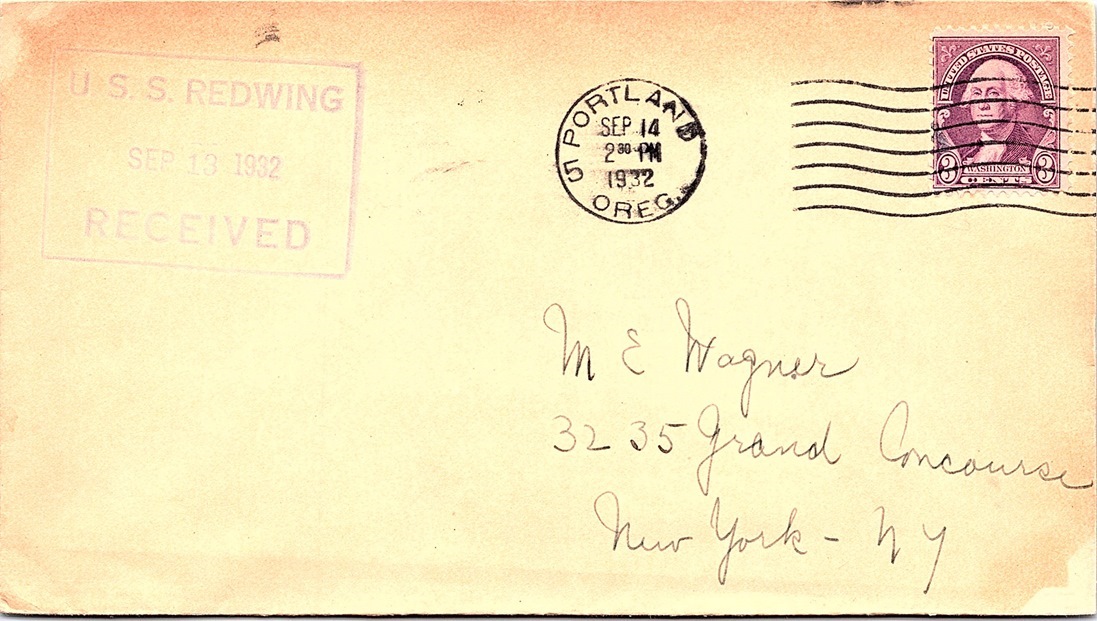 U. S. S. REDWING
SEP 13 1932
RECEIVED
PORTLAND
SEP 14
2 30 PM
1932
OREG.
5
UNITED STATES POSTAGE
3 WASHINGTON 3
CENTS
M E Wagner
3235 Grand Concourse
New York - N Y